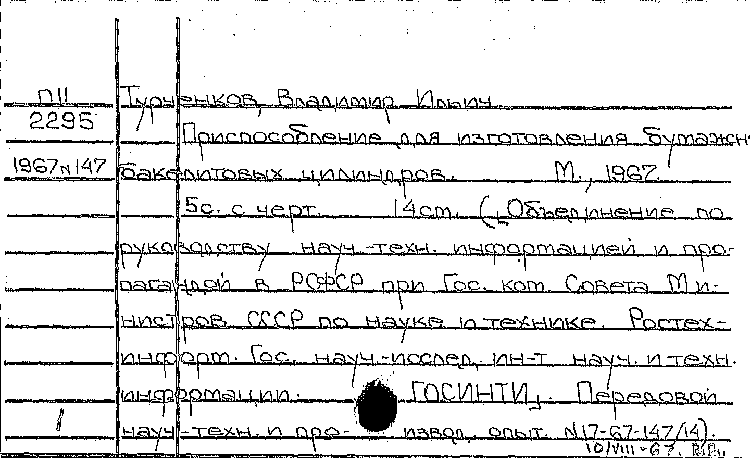 П11
2295
1967 N 147
Турченков, Владимир Ильич
Приспособление для изготовления бумажн
бакелитовых цилиндров. М., 1967.
5с. с черт. 14 см. (Объединение по
руководству науч.-техн. информацией и про-
пагандой в РСФСР при Гос. ком. Совета Ми-
нистров СССР по науке и технике. Ростех-
информ. Гос. науч.-исслед. ин-т науч. и техн.
информации. ГОСИНТИ. Передовой
1
науч.-техн. и про- извод. опыт. N17-67-147/14).
10/VIII-67.